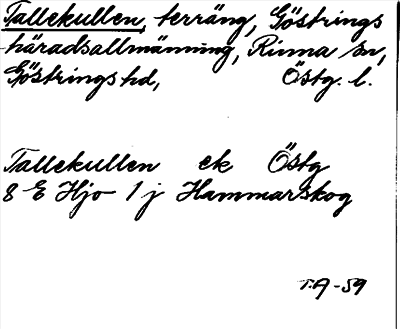 Tallekullen, terräng, Göstrings
häradsallmänning, Rinna sn,
Göstrings hd, Östg. l.
Tallekullen ek Östg
8 E Hjo 1 j Hammarskog
T.A-59